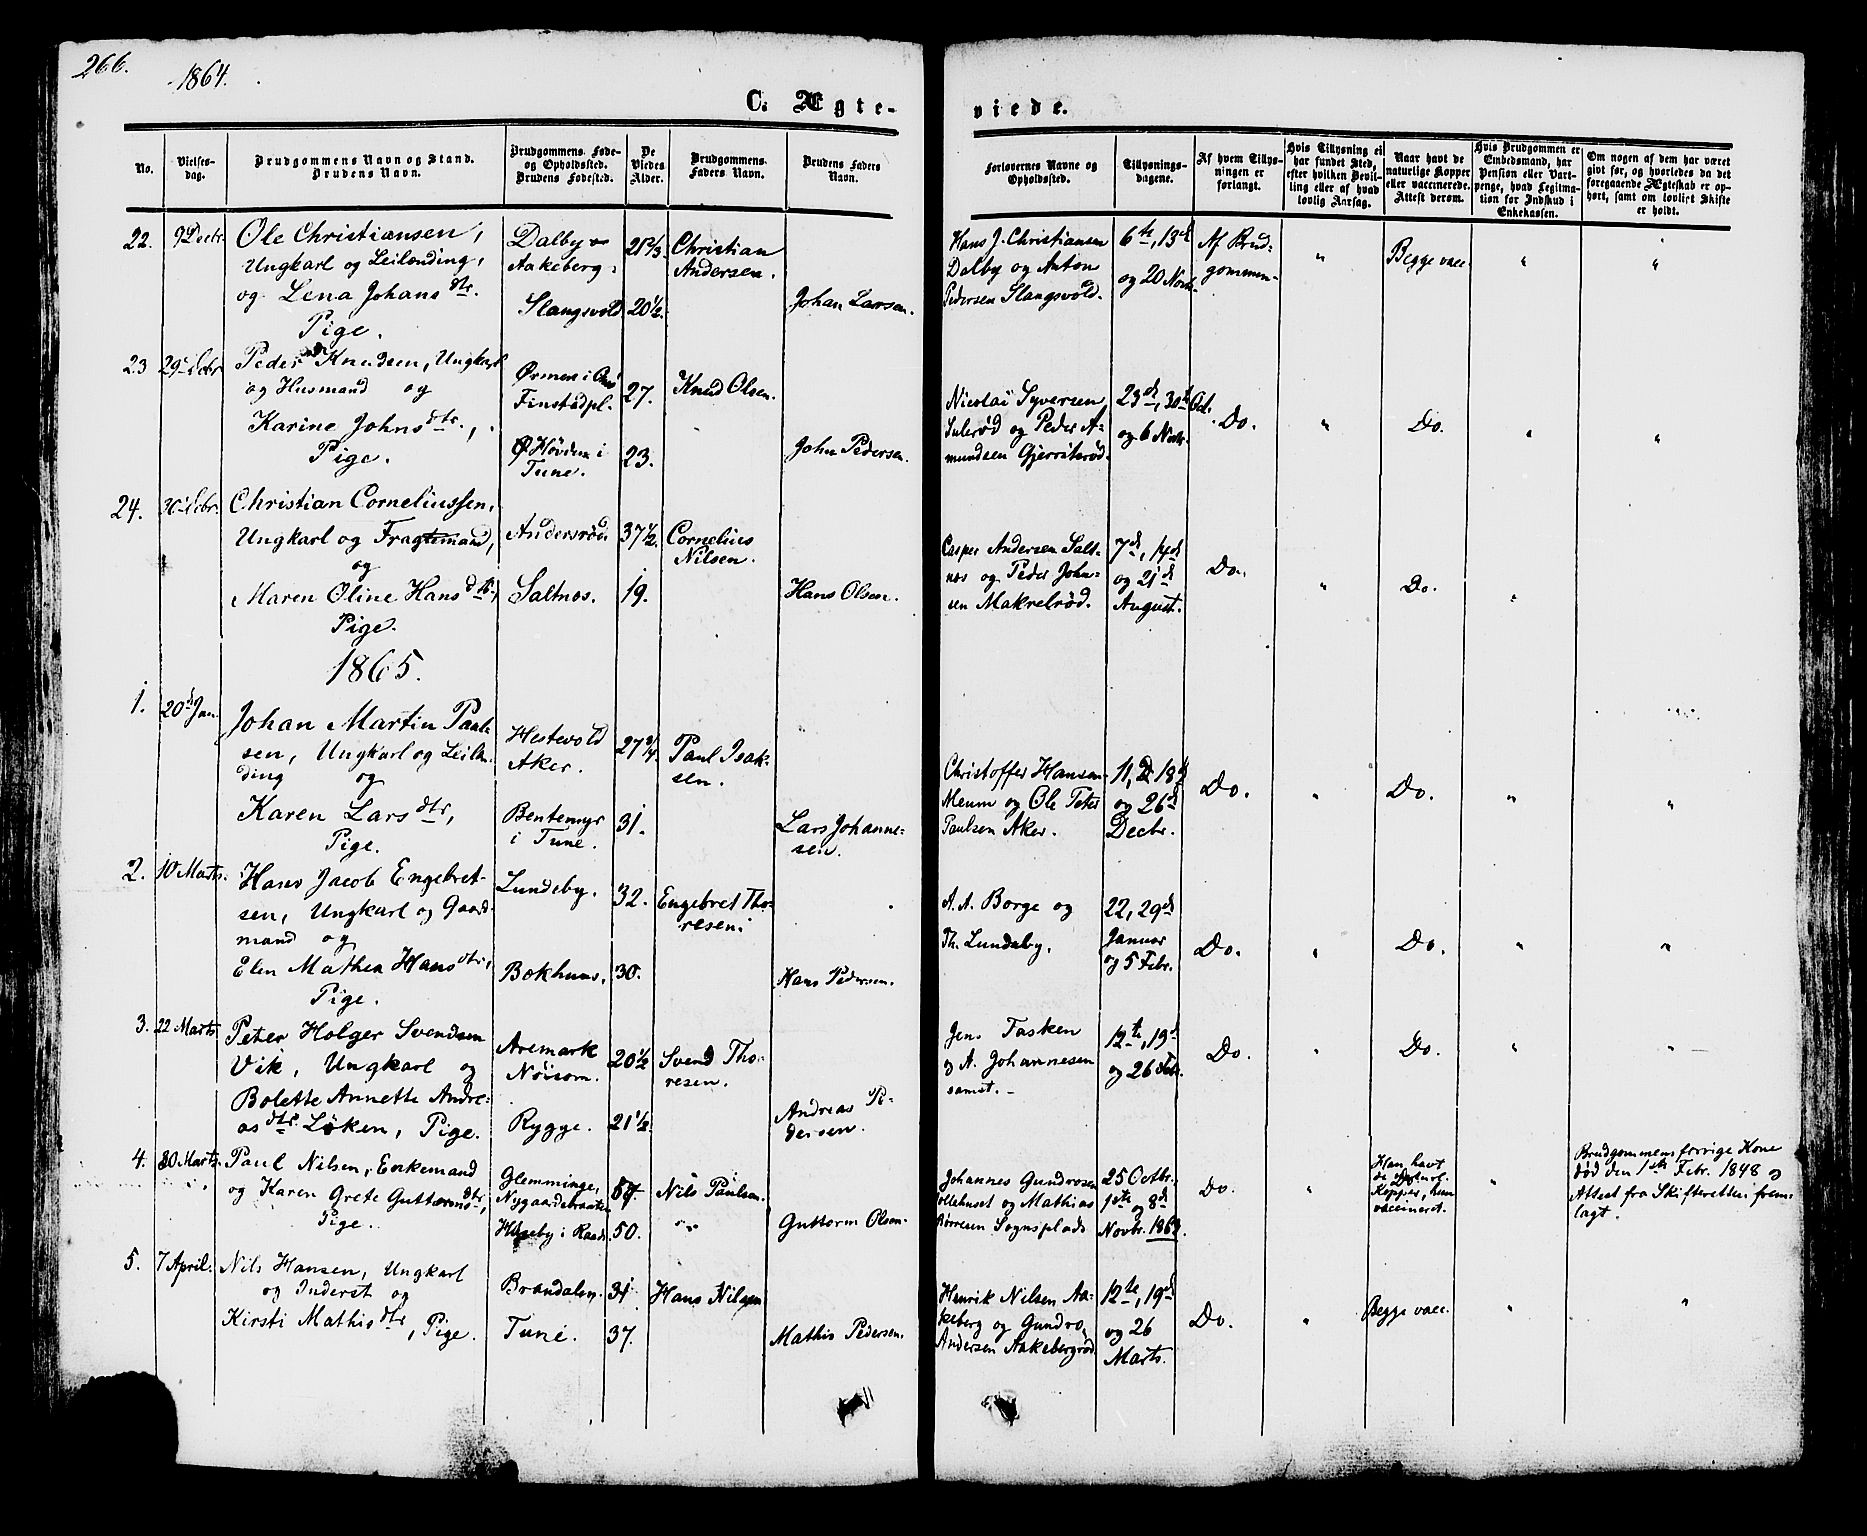 266.
1864.
C. Ægte-
viede.
No.
Vielses-
dag.
Brudgommens Navn og Stand.
Brudens Navn.
Brudgommens Føde-
og Opholdssted.
Brudens Fødested.
De
Viedes
Alder.
Brudgommens
Faders Navn.
Brudens Faders
Navn.
Forlovernes Navne og
Opholdssted.
Tillysnings-
dagene.
Af hvem Tillys-
ningen er
forlangt.
Hvis Tillysning ei
har fundet Sted,
efter hvilken Bevil-
ling eller af hvad
lovlig Aarsag.
Naar havt de
naturlige Kopper
eller vaccinerede.
Attest derom.
Hvis Brudgommen er
Embedsmand, har
Pension eller Vart-
penge, hvad Legitima-
tion for Indskud i
Enkekassen.
Om nogen af dem har været
gift før, og hvorledes da det
foregaaende Ægteskab er op-
hørt, samt om lovligt Skifte
er holdt.
22. 9 Decbr.
Ole Christiansen,
Ungkarl og Leilending,
og Lena Johansdtr.
Pige.
Dalby
Aakeberg.
Slangsvold
21 2/3.
20 1/2.
Christian
Andersen.
Johan Larsen.
Hans J. Christiansen
Dalby og Anton
Pedersen Slangsvold.
6te, 13de
og 20 Novb.
Af Brud-
gommen
"
Begge vacc.
"
"
23 29 Decbr
Peder Knudsen, Ungkarl
og Husmand og
Karine Johnsdtr.,
Pige.
Ørmen i
Finstadpl.
Ø Høvden i
Tune.
27.
23.
Knud Olsen.
John Pedersen.
Nicolai Syversen
Sulerød og Peder A-
mundsen Gjerritsrød.
23d, 30te Oct.
og 6 Novbr.
Do.
"
Do.
"
"
24. 30 Decbr.
Christian Corneliussen,
Ungkarl og Fragtemand,
og
Maren Oline Hansdtr.,
Pige.
Andersrød
Saltnes.
37 1/2.
19.
Cornelius
Nilsen.
Hans Olsen.
Casper Andersen Salt-
nes og Peder John-
sen Makrelrød.
7d, 14d
og 21d
August.
Do.
"
Do.
"
1865.
1. 20d Jan.
Johan Martin Paul-
sen, Ungkarl og Leilæn-
ding og
Karen Larsdtr,
Pige.
Hestevold
Aker.
Bentemyr
i Tune.
27 3/4.
31.
Paul Isak-
sen.
Lars Johanne-
sen.
Christoffer Hansen
Meum og Ole Peter
Paulsen Aker.
11, 18d
og 26d
Decbr.
Do.
"
Do.
"
"
2. 10 Marts.
Hans Jacob Engebret-
sen, Ungkarl og Gaard-
mand og
Elen Mathea Hansdtr,
Pige.
Lundeby.
Bokhuus.
32.
30.
Engebret Tho-
resen.
Hans Pedersen.
A. A. Borge og
Th. Lundeby.
22, 29d
Januar
og 5 Febr.
Do.
"
Do.
"
"
3. 22 Marts
Peter Holger Svendsen
Vik, Ungkarl og
Bolette Annette Andre-
asdtr. Løken, Pige.
Aremark
Nøisom.
Rygge.
20 1/2
21 1/2.
Svend Tho-
resen.
Andreas Pe-
dersen.
Jens Tasken
og A. Johannesen
samst.
12te, 19d
og 26 Febr.
Do.
"
Do.
"
"
4. 30 Marts.
Paul Nilsen, Enkemand
og Karen Grete Guttormsdtr,
Pige.
Glemminge,
Nygaardsbraaten
Huseby i Raade
57.
50.
Nils Paulsen.
"
Guttorm Olsen.
Johannes Gundrosen
Ellehuset og Mathias
Børresen Sognsplads
25 Octbr.
1ste og 8d
Novbr. 1863.
Do.
"
Han havt
de naturl.
Kopper, hun
vaccineret.
"
Brudgommens forrige Kone
død den 1ste Febr. 1848 og
Attest fra Skifteretten frem-
lagt.
5. 7 April.
Nils Hansen, Ungkarl
og Inderst og
Kirsti Mathisdtr, Pige.
Brandalen.
Tune.
31
37.
Hans Nilsen
Mathis Pedersen.
Henrik Nilsen Aa-
keberg og Gundro
Andersen Aakebergrød
12te, 19d
og 26
Marts.
Do.
"
Begge vacc.
"
"